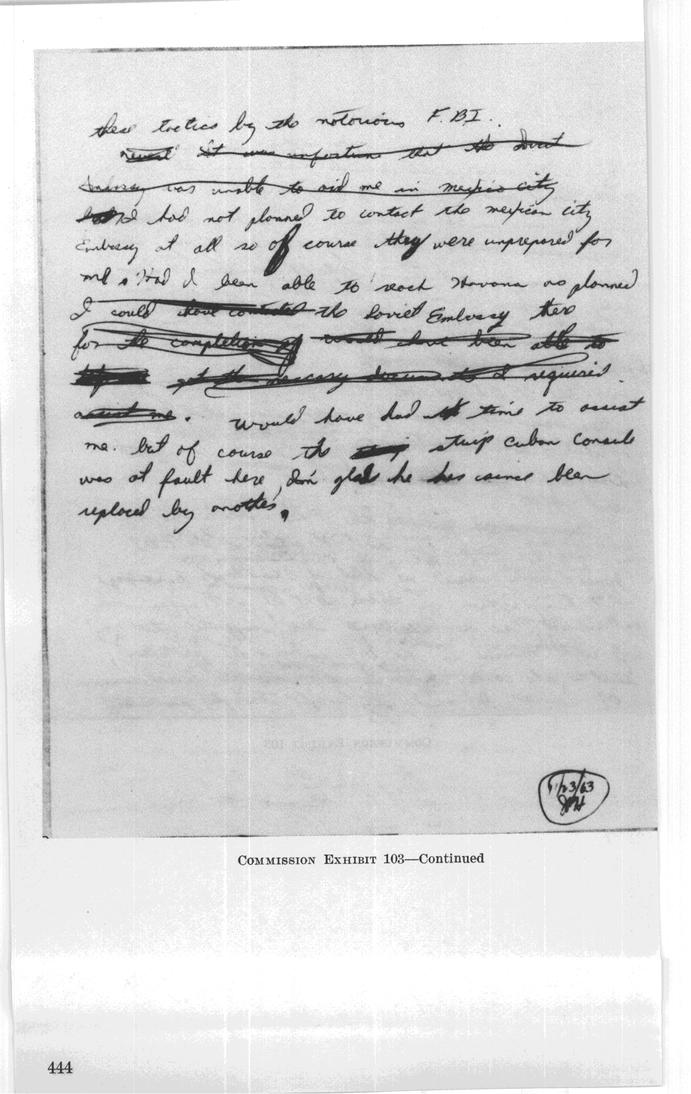 these tactics by the notorious F.B.I..
It was unfortune that the Soviet
Embassy was unable to aid me in mexico city
I had not planned to contact the mexican city
Embassy at all so of course they were unprepared for
me. Had I been able to reach Havana as planned
I could have contacted the Soviet Embassy there
for the completion of would have been able to
get the necessary documents I required
assist me. would have had time to assist
me. but of course the stuip cuban consule
was at fault here, I'm glad he has since been
replaced by another.
11/23/63
COMMISSION EXHIBIT 103—Continued
444